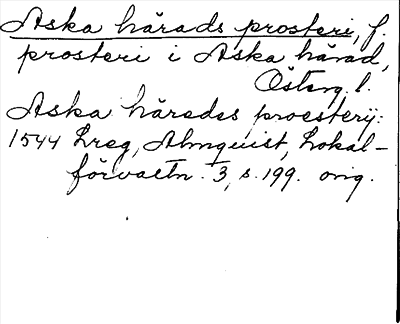 Aska härads prosteri, f.
prosteri i Aska härad,
Österg. l.
Aska häredes proesterij:
1544 Lreg, Almquist, Lokal-
förvaltn. 3, s. 199. orig.